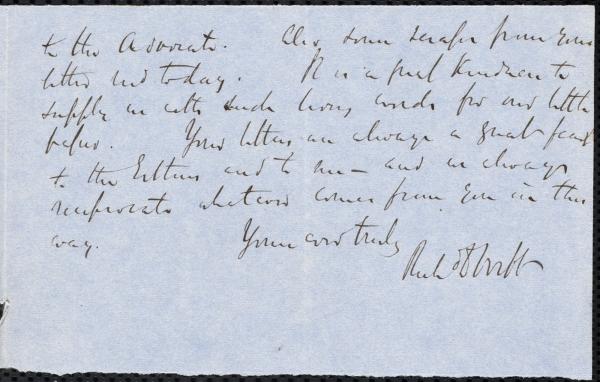 to the Advocate. Also some scraps from your
letter rec'd today. It is a great kindness to
supply us with such living words for our little
paper. Your letters are always a great feast
to the Editors and to me — and we always
reciprocate whatever comes from you in this
way. Yours very truly
Rich'd D Webb